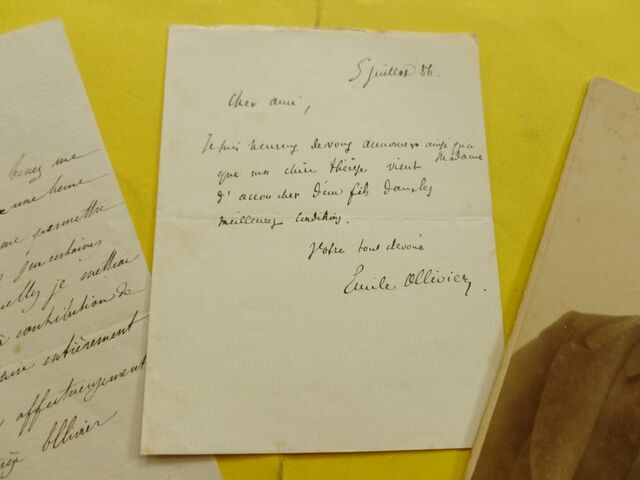 5 juillet 86.
Cher ami,
Je suis heureux de vous annoncer ainsi qu'a
Madame
que ma chère thérèse vient
d'accoucher d'un fils dans les
meilleures conditions.
Votre tout dévoué
Emile Ollivier
venez me
une heure
me permettre
d'incertaines
je mettrai
contribution de
entièrement
affectueusement
Ollivier